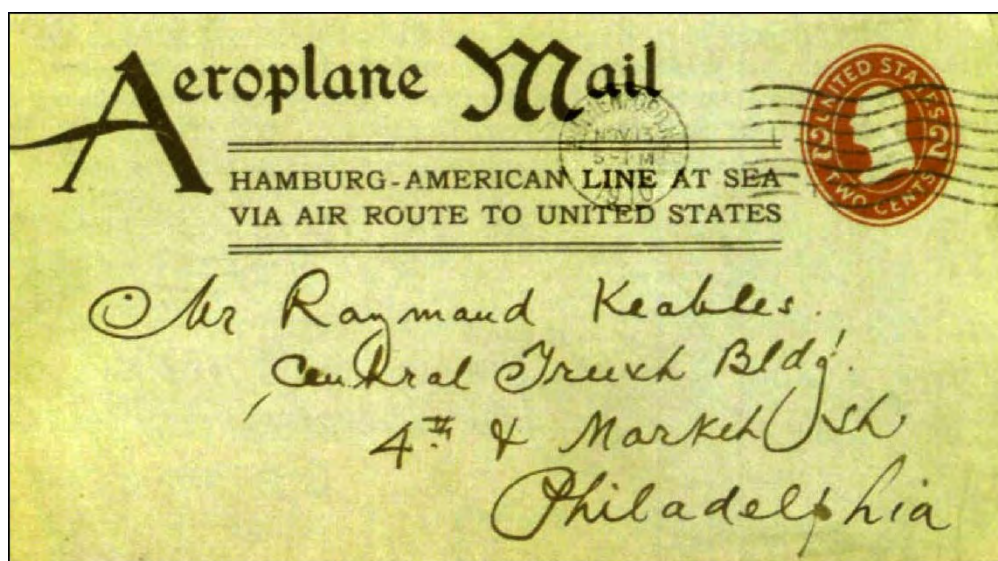 Aeroplane Mail
HAMBURG-AMERICAN LINE AT SEA
VIA AIR ROUTE TO UNITED STATES
NOV 13
5-PM
UNITED STATES
2 2
TWO CENTS
Mr Raymand Keables.
Central Trust Bldg.
4th & Market St
Philadelphia